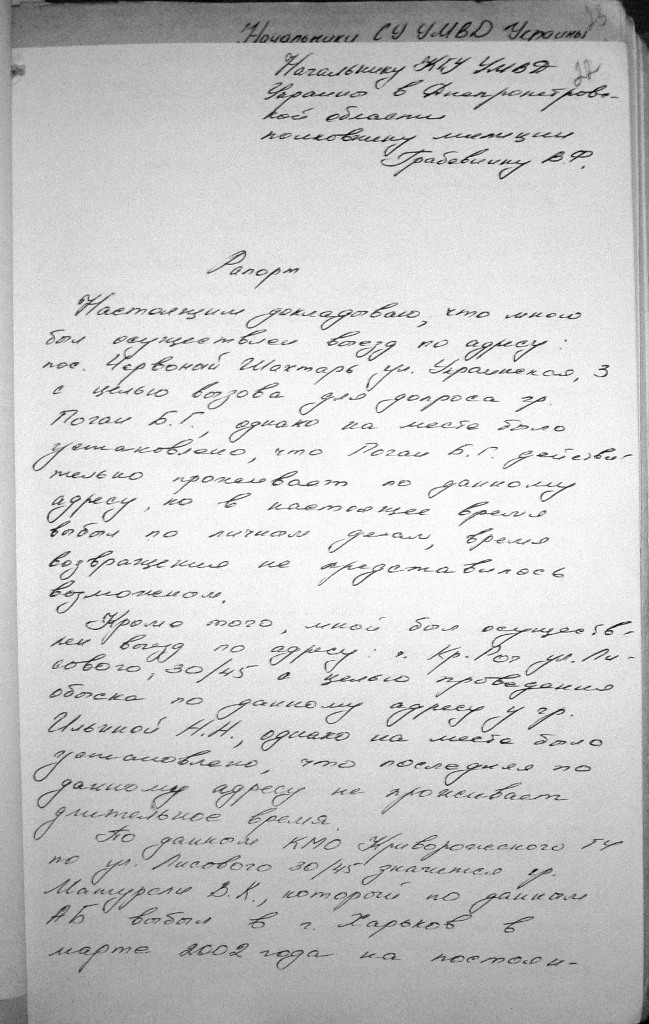 Начальники СУ УМВД Украины
Начальнику КГУ УМВД
Украины в Днепропетровс-
кой области
полковнику милиции
Грабевнику В.Ф.
Рапорт
Настоящим докладываю, что мною
был осуществлен выезд по адресу:
пос. Червоный Шахтарь ул. Украинская, 3
с целью вызова для допроса гр.
Поган Б.Г., однако на месте было
установлено, что Поган Б.Г. действи-
тельно проживает по данному
адресу, но в настоящее время
выбыл по личным делам, время
возвращения не представилось
возможном.
Кроме того, мной был осуществ-
лен выезд по адресу: г. Кр. Рог ул. Ли-
сового, 30/45 с целью проведения
обыска по данному адресу у гр.
Ильиной Н.Н., однако на месте было
установлено, что последняя по
данному адресу не проживает
длительное время.
По данным КМО Криворожского ГУ
по ул. Лисового 30/45 значится гр.
В.К., который по данным
АБ выбыл в г. Харьков в
марте 2002 года на постоян-